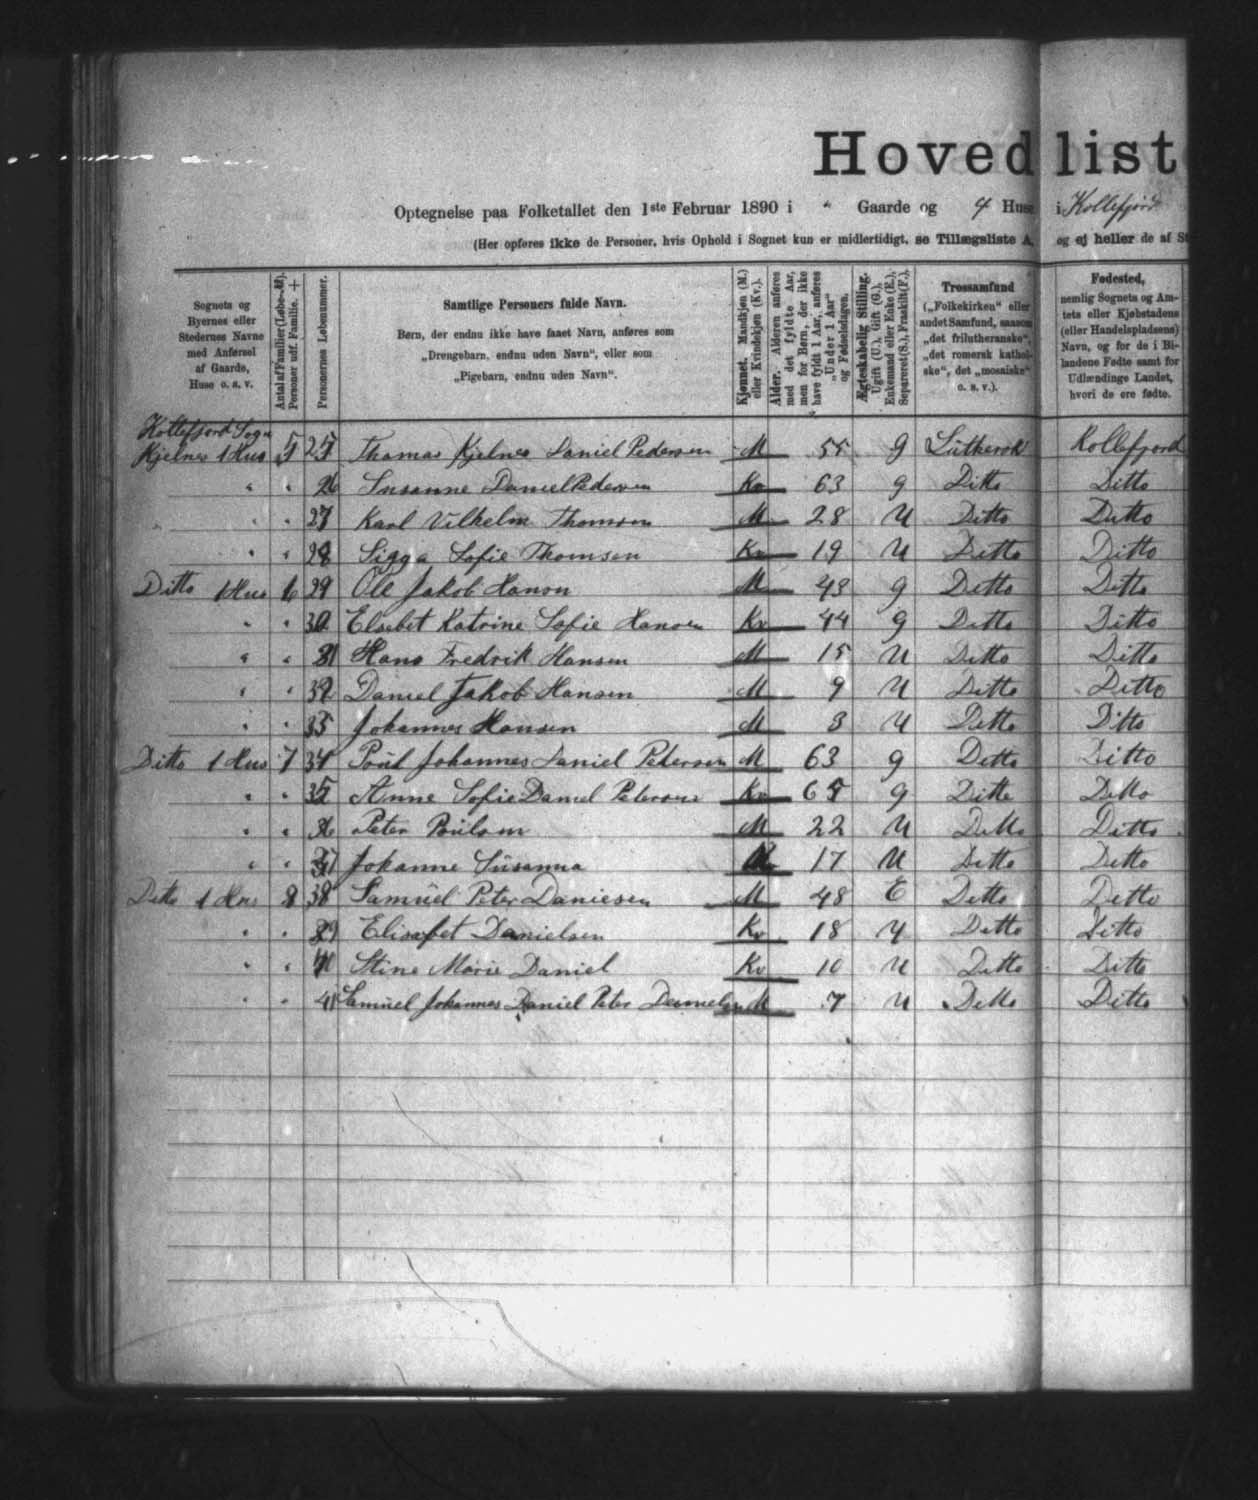 Hovedlist
Optegnelse paa Folketallet den 1ste Februar 1890 i " Gaarde og 4 Huse i Kollefjord
(Her opføres ikke de Personer, hvis Ophold i Sognet kun er midlertidigt, se Tillægsliste A, og ej heller de af St
Sognets og Byernes eller Stedernes Navne med Anførsel af Gaarde, Huse o. s. v.
Antal af Familier (Løbe-№). Personer udf. Familie. +
Personernes Løbenummer.
Samtlige Personers fulde Navn.
Børn, der endnu ikke have faaet Navn, anføres som
„Drengebarn, endnu uden Navn“, eller som
„Pigebarn, endnu uden Navn“.
Kjønnet. Mandkjøn (M.) eller Kvindekjøn (Kv.).
Alder. Alderen anføres med det fyldte Aar, men for Børn, der ikke have fyldt 1 Aar, anføres „Under 1 Aar“ og Fødselsdagen.
Ægteskabelig Stilling. Ugift (U.), Gift (G.), Enkemand eller Enke (E.), Separeret (S.), Fraskilt (F.).
Trossamfund („Folkekirken“ eller andet Samfund, saasom „det frilutheranske“, „det romersk katholske“, det „mosaiske“ o. s. v.).
Fødested, nemlig Sognets og Amtets eller Kjøbstadens (eller Handelspladsens) Navn, og for de i Bilandene Fødte samt for Udlændinge Landet, hvori de ere fødte.
Kollefjord Sogn
Kjelnes 1 Hus 5 25 Thomas Kjelnes Daniel Pedersen M 55 g Luthersk Kollefjord
" " 26 Susanne Daniel Pedersen Kv 63 g Ditto Ditto
" " 27 Karl Vilhelm Thomsen M 28 U Ditto Ditto
" " 28 Sigga Sofie Thomsen Kv 19 U Ditto Ditto
Ditto 1 Hus 6 29 Ole Jakob Hansen M 43 g Ditto Ditto
" " 30 Elsebet Katrine Sofie Hansen Kv 44 g Ditto Ditto
" " 31 Hans Fredrik Hansen M 15 U Ditto Ditto
" " 32 Daniel Jakob Hansen M 9 U Ditto Ditto
" " 33 Johannes Hansen M 3 U Ditto Ditto
Ditto 1 Hus 7 34 Poul Johannes Daniel Petersen M 63 g Ditto Ditto
" " 35 Anne Sofie Daniel Petersen Kv 65 g Ditto Ditto
" " 36 Peter Poulsen M 22 U Ditto Ditto
" " 37 Johanne Susanna 17 U Ditto Ditto
Ditto 1 Hus 8 38 Samuel Peter Daniesen M 48 E Ditto Ditto
" " 39 Elisabet Danielsen Kv 18 U Ditto Ditto
" " Stine Marie Daniel Kv 10 U Ditto Ditto
" " 41 Samuel Johannes Daniel Peter Danielsen M 7 U Ditto Ditto